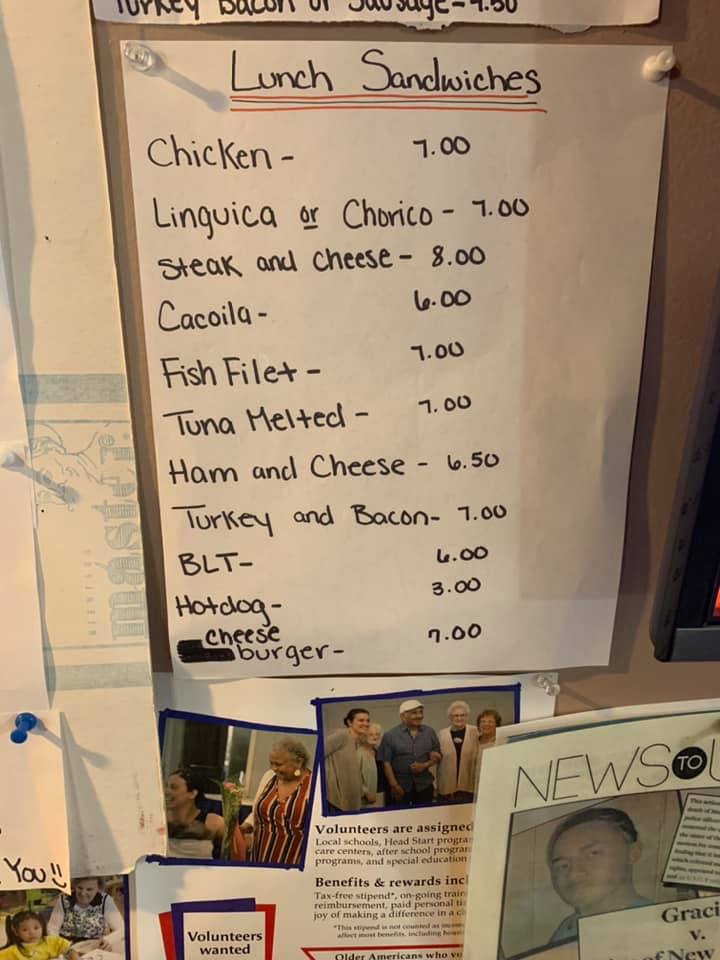 Turkey Bacon or Sausage-4.50
Lunch Sandwiches
Chicken - 7.00
Linguica or Chorico - 7.00
Steak and cheese - 8.00
Cacoila - 6.00
Fish Filet - 7.00
Tuna Melted - 7.00
Ham and Cheese - 6.50
Turkey and Bacon- 7.00
BLT- 6.00
Hotdog- 3.00
cheese
burger- 7.00
You!!
Volunteers are assigned
Local schools, Head Start
care centers, after school
programs, and special education
Benefits & rewards
Tax-free stipend*, on-going
reimbursement, paid personal
joy of making a difference in a
*This stipend is not counted as
affect most benefits, including
Volunteers
wanted
Older Americans who
NEWS TO
Graci
v.
of New